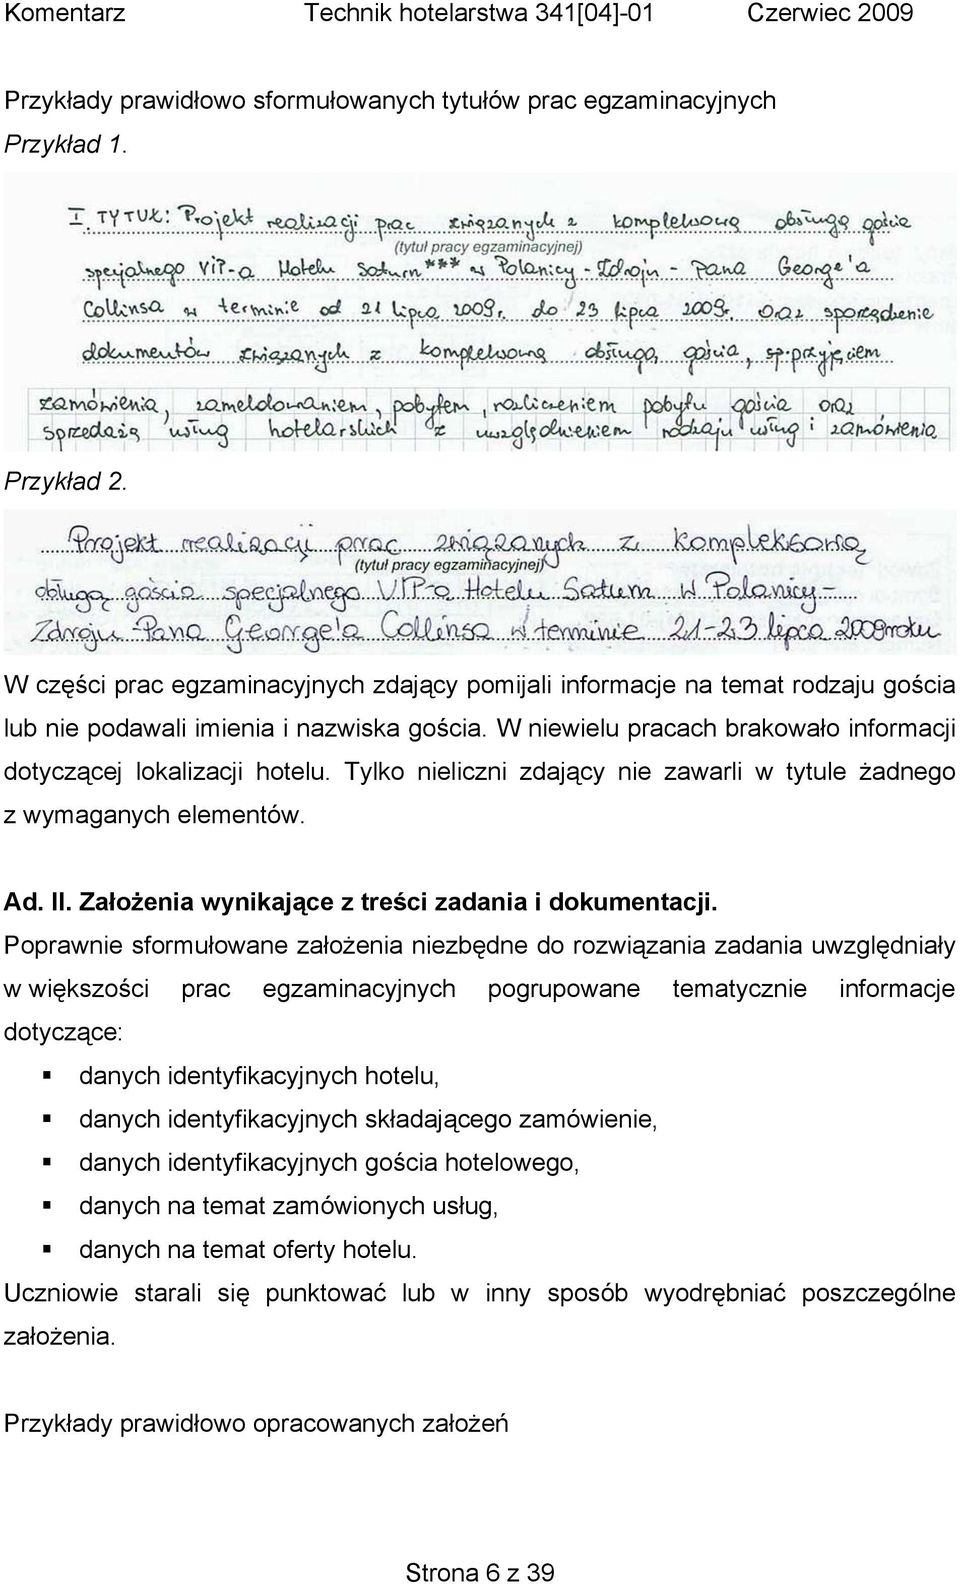 Komentarz Technik hotelarstwa 341[04]-01 Czerwiec 2009
Przykłady prawidłowo sformułowanych tytułów prac egzaminacyjnych
Przykład 1.
I. TYTUŁ: Projekt realizacji prac związanych z kompleksową obsługą gościa
(tytuł pracy egzaminacyjnej)
specjalnego VIP-a Hotelu Saturn*** w Polanicy-Zdroju - Pana George'a
Collinsa w terminie od 21 lipca 2009r. do 23 lipca 2009r. Oraz sporządzenie
dokumentów związanych z kompleksową obsługą gościa, sp. przyjęciem
zamówienia, zameldowaniem, pobytem, rozliczeniem pobytu gościa oraz
sprzedażą usług hotelarskich z uwzględnieniem rodzaju usług i zamówienia
Przykład 2.
Projekt realizacji prac związanych z kompleksową
(tytuł pracy egzaminacyjnej)
obługą gościa specjalnego VIP-a Hotelu Saturn w Polanicy-
Zdroju - Pana George'a Collinsa w terminie 21-23 lipca 2009 roku
W części prac egzaminacyjnych zdający pomijali informacje na temat rodzaju gościa
lub nie podawali imienia i nazwiska gościa. W niewielu pracach brakowało informacji
dotyczącej lokalizacji hotelu. Tylko nieliczni zdający nie zawarli w tytule żadnego
z wymaganych elementów.
Ad. II. Założenia wynikające z treści zadania i dokumentacji.
Poprawnie sformułowane założenia niezbędne do rozwiązania zadania uwzględniały
w większości prac egzaminacyjnych pogrupowane tematycznie informacje
dotyczące:
▪ danych identyfikacyjnych hotelu,
▪ danych identyfikacyjnych składającego zamówienie,
▪ danych identyfikacyjnych gościa hotelowego,
▪ danych na temat zamówionych usług,
▪ danych na temat oferty hotelu.
Uczniowie starali się punktować lub w inny sposób wyodrębniać poszczególne
założenia.
Przykłady prawidłowo opracowanych założeń
Strona 6 z 39